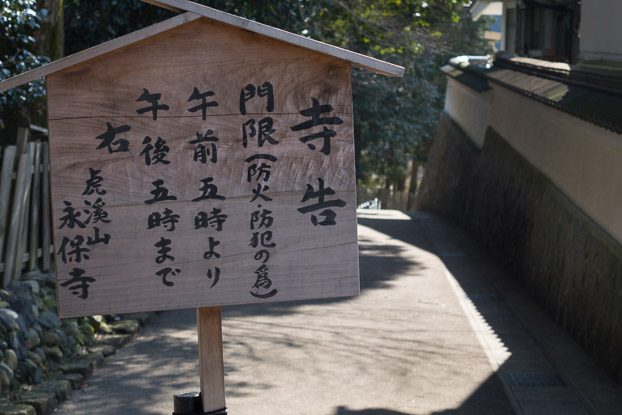 寺告
門限(防火・防犯の為)
午前五時より
午後五時まで
右
虎渓山
永保寺